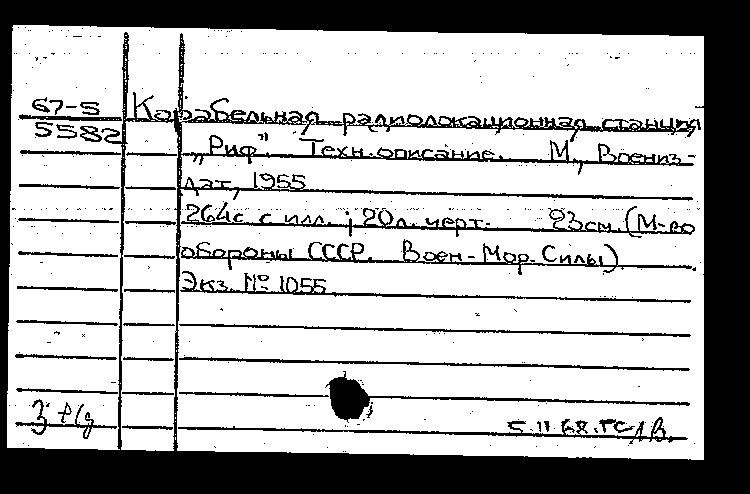 67-5
5582
Карабельная радиолокационная станция
„Риф". Техн. описание. М., Воениз-
дат, 1955
264с с илл.; 20л. черт. 23см. (М-во
обороны СССР. Воен-Мор. Силы).
Экз. № 1055
5.II.68.